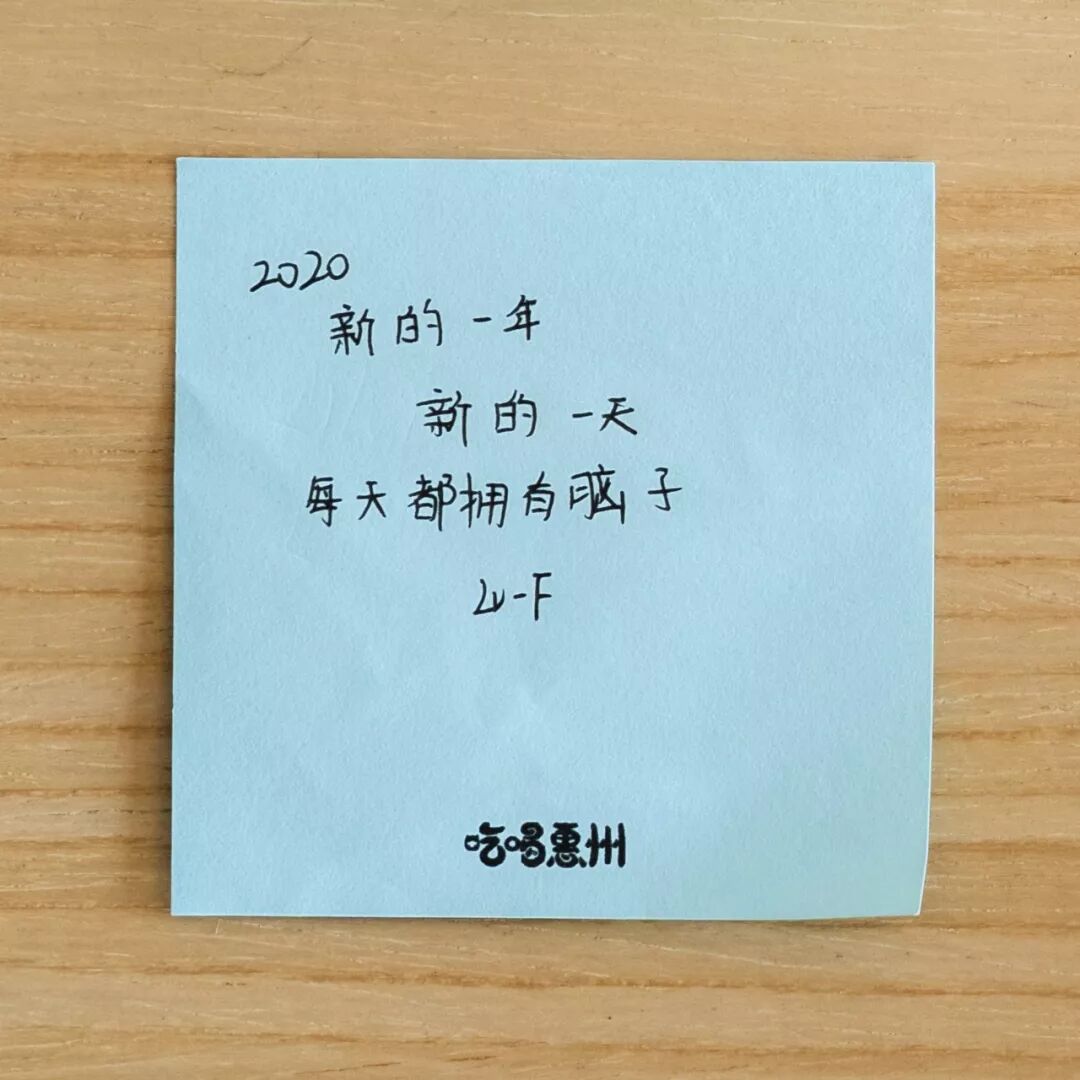 2020
新的一年
新的一天
每天都拥有脑子
吃喝惠州